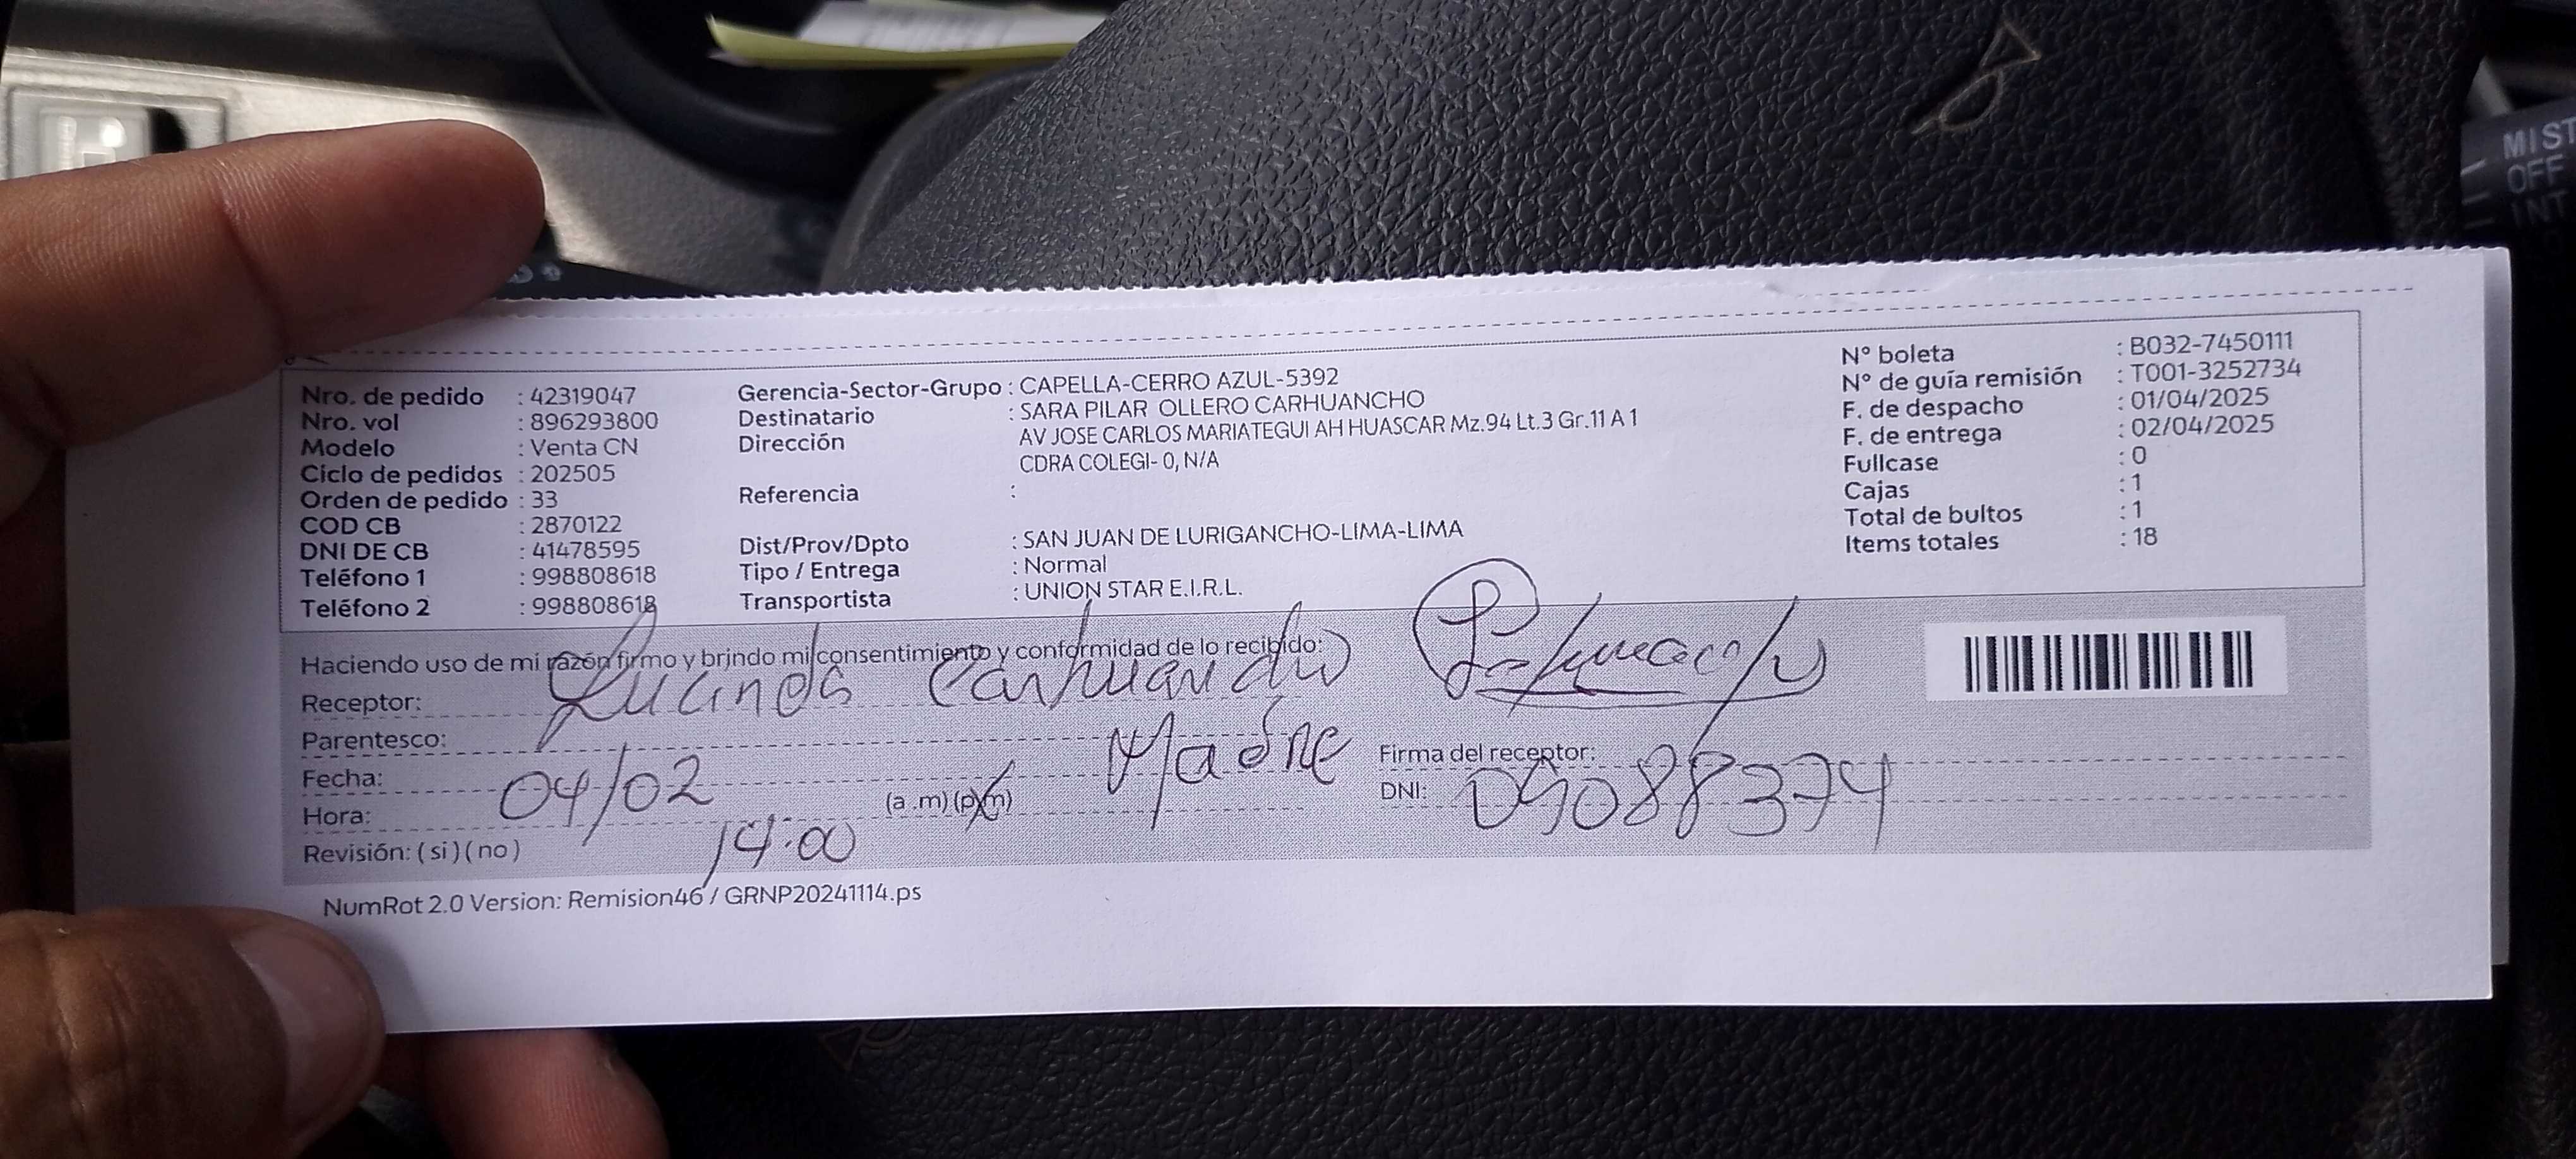 MIST
OFF
INT
Nro. de pedido : 42319047
Nro. vol : 896293800
Modelo : Venta CN
Ciclo de pedidos : 202505
Orden de pedido : 33
COD CB : 2870122
DNI DE CB : 41478595
Teléfono 1 : 998808618
Teléfono 2 : 998808618
Gerencia-Sector-Grupo : CAPELLA-CERRO AZUL-5392
Destinatario : SARA PILAR OLLERO CARHUANCHO
Dirección AV JOSE CARLOS MARIATEGUI AH HUASCAR Mz.94 Lt.3 Gr.11 A 1
CDRA COLEGI- 0, N/A
Referencia :
Dist/Prov/Dpto : SAN JUAN DE LURIGANCHO-LIMA-LIMA
Tipo / Entrega : Normal
Transportista : UNION STAR E.I.R.L.
N° boleta : B032-7450111
N° de guía remisión : T001-3252734
F. de despacho : 01/04/2025
F. de entrega : 02/04/2025
Fullcase : 0
Cajas : 1
Total de bultos : 1
Items totales : 18
Haciendo uso de mi razón firmo y brindo mi consentimiento y conformidad de lo recibido:
Receptor: Lucinda Carhuancho
Parentesco: Madre
Fecha: 04/02
Hora: 14:00 (a .m) (p.m)
Revisión: ( si ) ( no )
Firma del receptor:
DNI: 09088374
NumRot 2.0 Version: Remision46 / GRNP20241114.ps